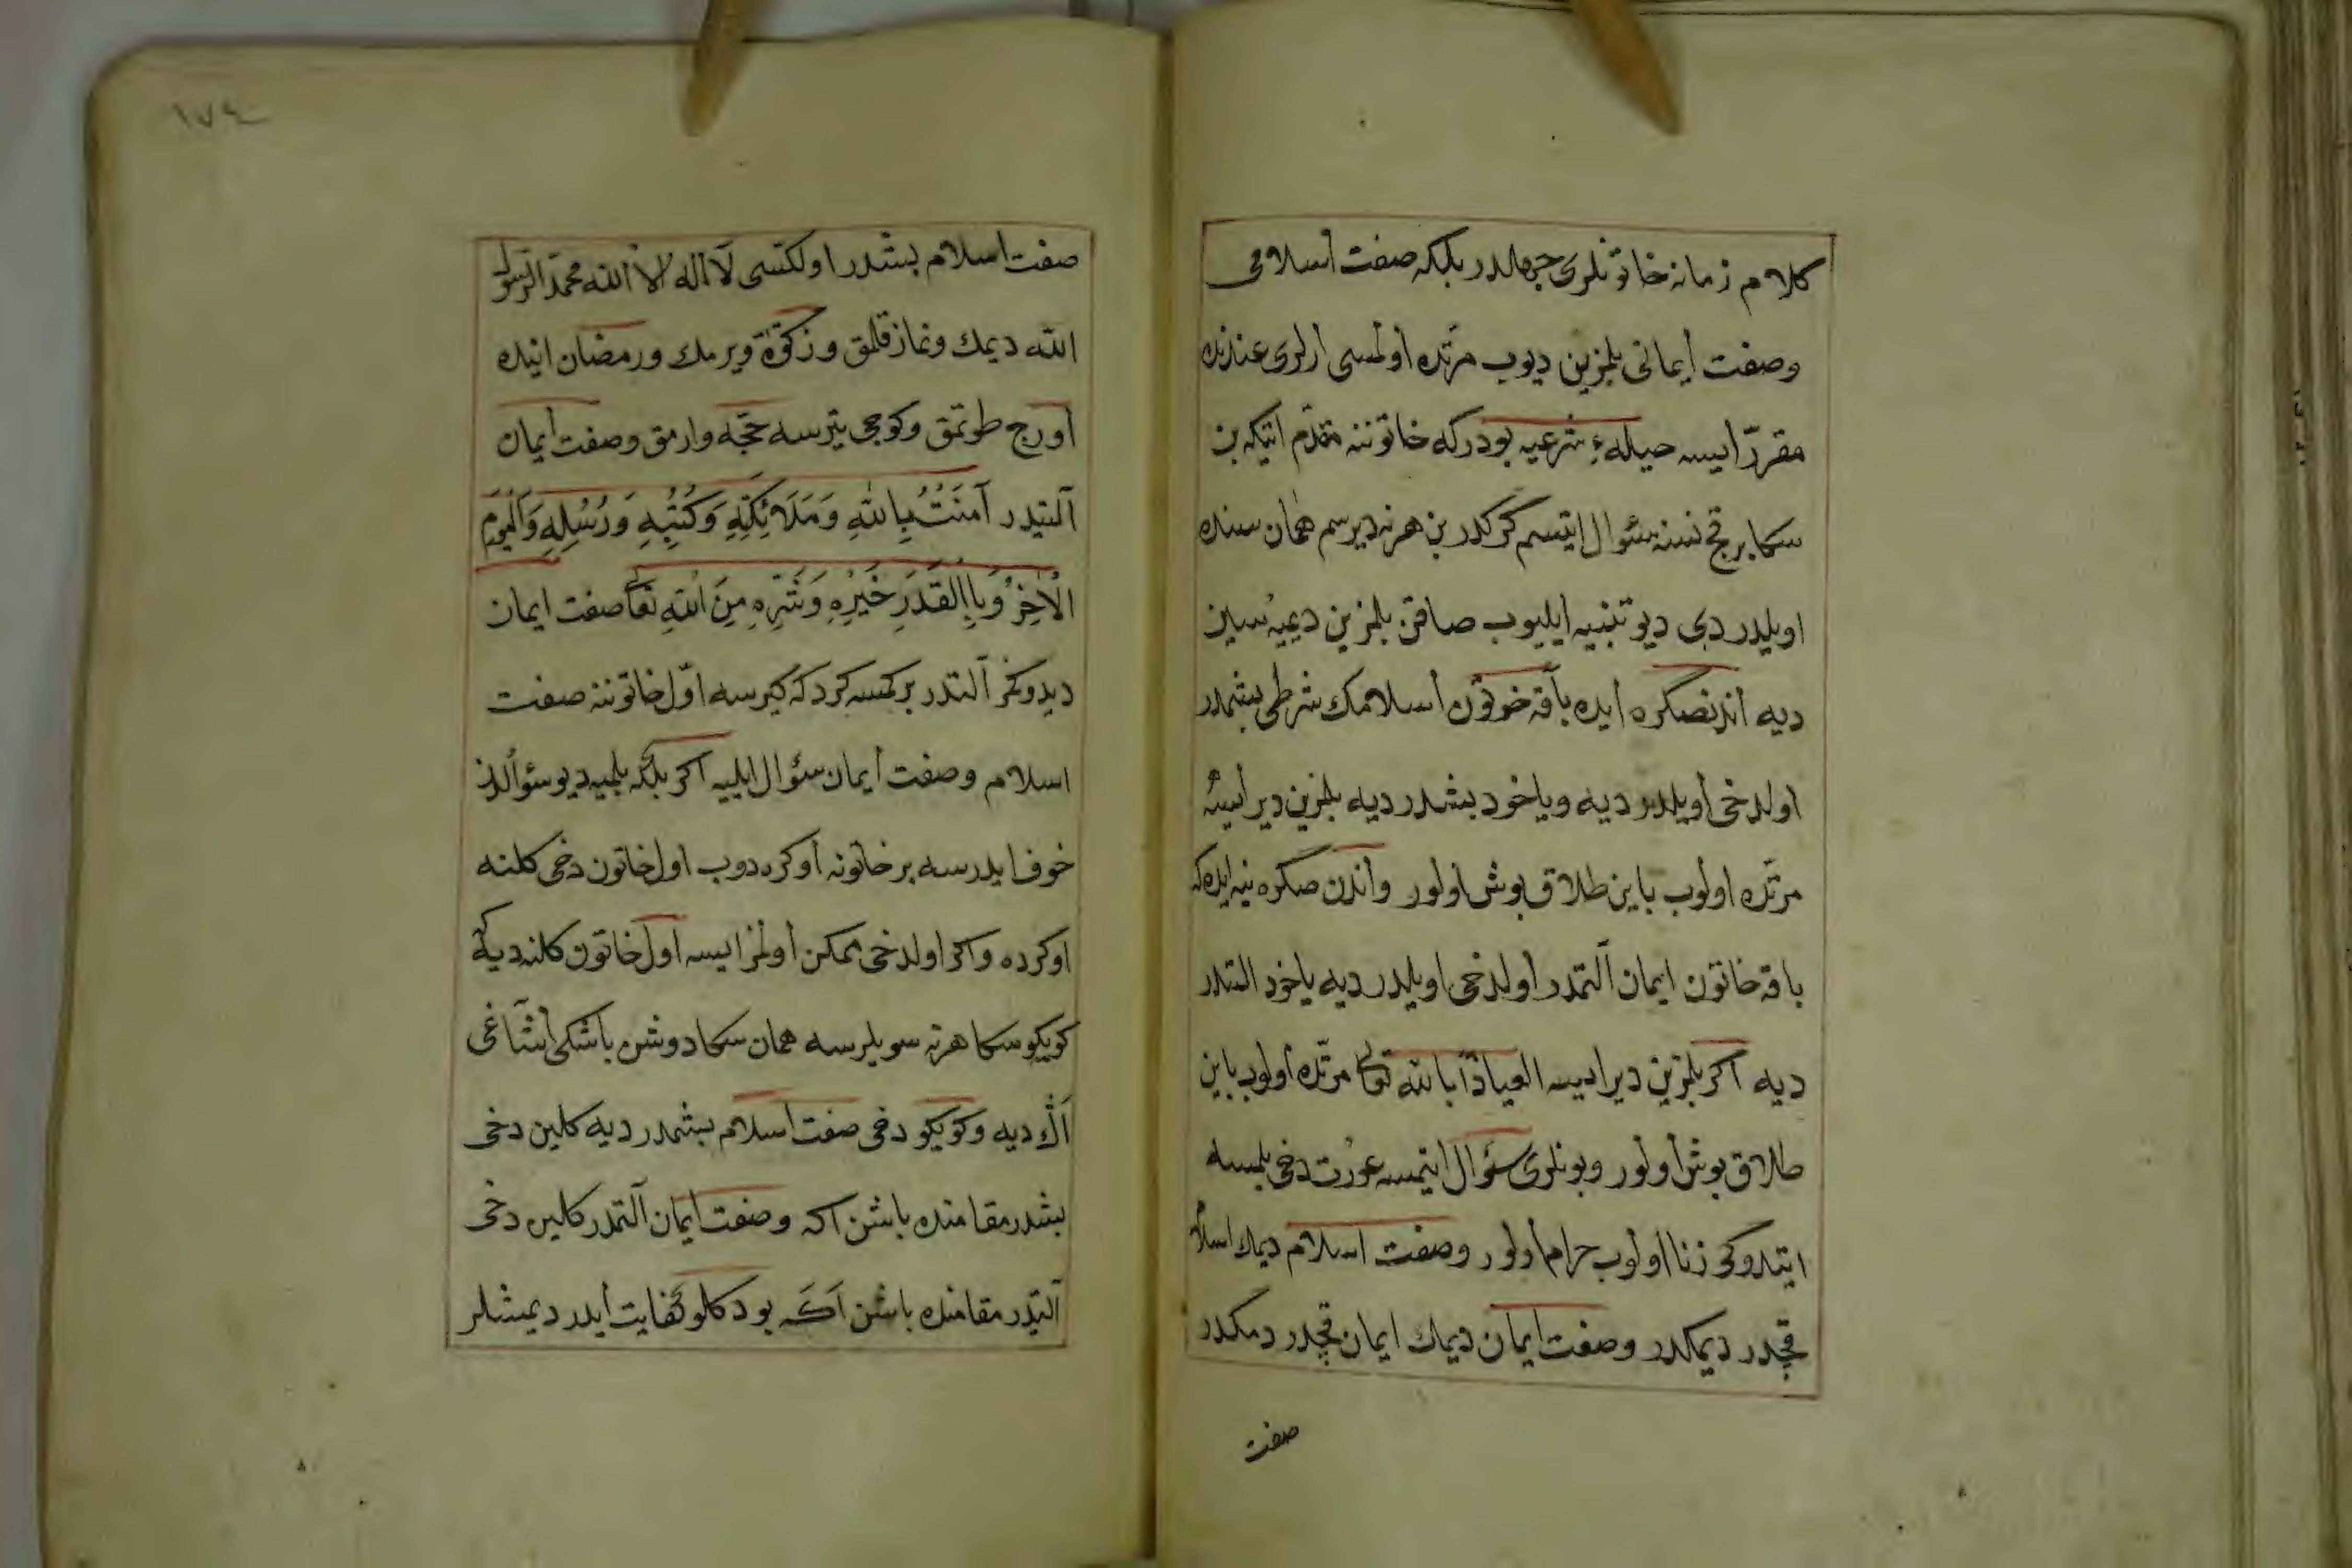 كلام زمانه خاتونلرى جهالدر بلكه صفت اسلامى
وصفت ايمانى بلمزين ديوب مرتده اولمسى ارلرى عندنده
مقرر ايسه حيلهء شرعيه بودركه خاتوننه مقدم ايتكه بن
سكا برقچ نسنه سئوال ايتسم كركدر بن هرنه ديرسم همان سنده
اويلدر دى ديو تنبيه ايليوب صاقن بلمزين ديميه سين
ديه اندنصكره ايده باقه خوتون اسلامك شرطى بشمدر
اولدخى اويلدر ديه وياخود بشدر ديه بلمزين ديرايسه
مرتده اولوب باين طلاق بوش اولور واندن صكره ينه ايده كه
باقه خاتون ايمان التمدر اولدخى اويلدر ديه ياخود التدر
ديه اكر بلمزين ديرايسه العياذا بالله تعالى مرتده اولوب باين
طلاق بوش اولور وبونلرى سئوال ايتمسه عورت دخى بلمسه
ايتدوكى زنا اولوب حرام اولور وصفت اسلام ديمك اسلام
قچدر ديمكدر وصفت ايمان ديمك ايمان قچدر دمكدر
صفت
١٧٤
صفت اسلام بشدر اولكسى لا اله الا الله محمد الرسول
الله ديمك ونماز قلمق وزكوة ويرمك ورمضان اينده
اورج طوتمق وكوجى يترسه حجه وارمق وصفت ايمان
التيدر آمَنْتُ بِاللهِ وَمَلَائِكَتِهِ وَكُتُبِهِ وَرُسُلِهِ وَالْيَوْمِ
الْاخِرِ وَبِاالْقَدَرِ خَيْرِهِ وَشَرِّهِ مِنَ اللهِ تَعَالى صفت ايمان
ديدوكمز التدر بركمسه كردكه كيرسه اول خاتوننه صفت
اسلام وصفت ايمان سئوال ايليه اكر بلكه بلميه ديو سئوالدن
خوف ايدرسه برخاتونه اوكره دوب اول خاتون دخى كلنه
اوكرده واكر اولدخى ممكن اولمز ايسه اول خاتون كلنه ديه كه
كويكو سكا هرنه سويلرسه همان سكا دوشن باشكى اشاغى
اك ديه وكويكو دخى صفت اسلام بشمدر ديه كلين دخى
بشدر مقامنده باشن اكه وصفت ايمان التمدر كلين دخى
التيدر مقامنده باشن اكه بودكلو كفايت ايدر ديمشلر